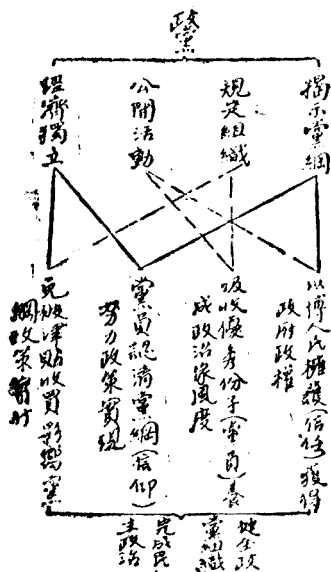 政黨
揭示黨綱
規定組織
公開活動
經濟獨立
以博人民擁護(信任)獲得
政府政權
吸收優秀份子(黨員)養
成政治家風度
黨員認清黨綱(信仰)
努力政策實現
免被津貼收買影響黨
綱政策
地生政
黨組織
完成民
主政治